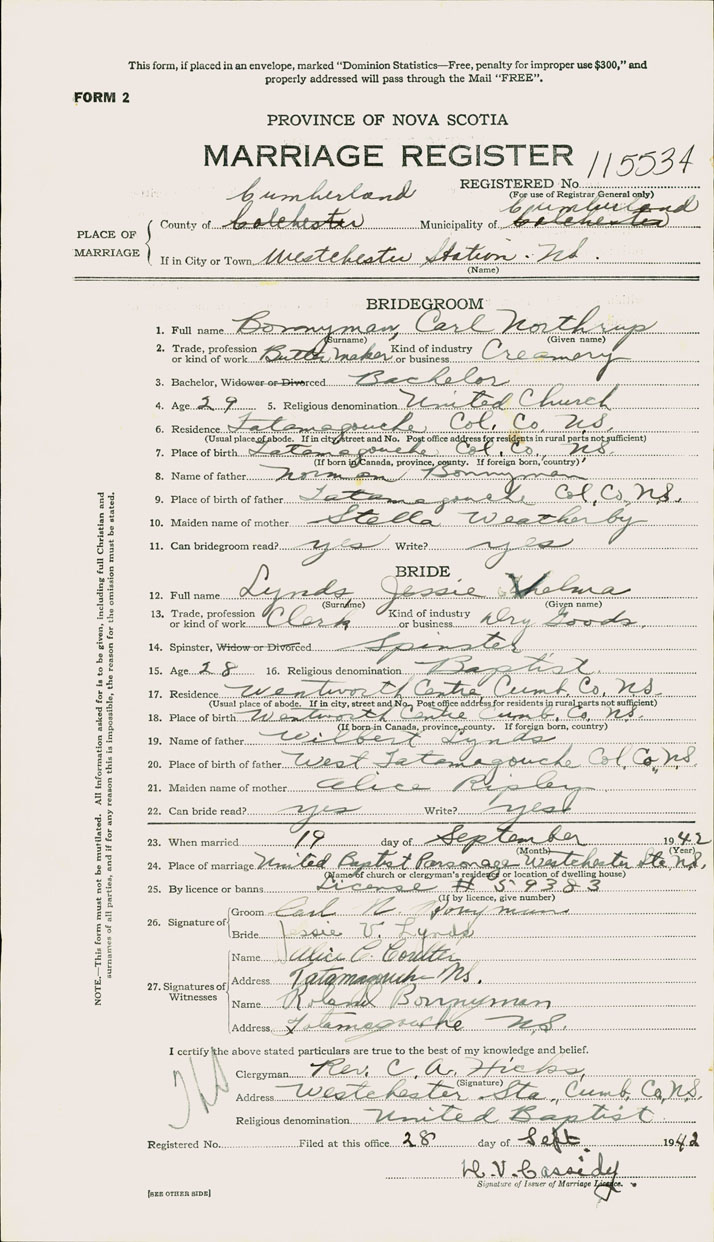 This form, if placed in an envelope, marked "Dominion Statistics—Free, penalty for improper use $300," and
properly addressed will pass through the Mail "FREE".
FORM 2
PROVINCE OF NOVA SCOTIA
MARRIAGE REGISTER
REGISTERED No. 115534
(For use of Registrar General only)
Cumberland Cumberland
PLACE OF MARRIAGE
County of Colchester Municipality of Colchester
If in City or Town Westchester Station. NS.
(Name)
BRIDEGROOM
1. Full name Bonnyman, Carl Northrup
(Surname) (Given name)
2. Trade, profession or kind of work Butter maker Kind of industry or business Creamery
3. Bachelor, Widower or Divorced Bachelor
4. Age 29 5. Religious denomination United Church
6. Residence Tatamagouche Col. Co. NS.
(Usual place of abode. If in city, street and No. Post office address for residents in rural parts not sufficient)
7. Place of birth Tatamagouche Col. Co., NS.
(If born in Canada, province, county. If foreign born, country)
8. Name of father Norman Bonnyman
9. Place of birth of father Tatamagouche Col, Co, N.S.
10. Maiden name of mother Stella Weatherby
11. Can bridegroom read? yes Write? yes
BRIDE
12. Full name Lynds Jessie Velma
(Surname) (Given name)
13. Trade, profession or kind of work Clerk Kind of industry or business Dry Goods.
14. Spinster, Widow or Divorced Spinster
15. Age 28 16. Religious denomination Baptist.
17. Residence Wentworth Centre, Cumb. Co, NS.
(Usual place of abode. If in city, street and No. Post office address for residents in rural parts not sufficient)
18. Place of birth Wentworth Centre Cumb. Co, NS.
(If born in Canada, province, county. If foreign born, country)
19. Name of father Wilbert Lynds
20. Place of birth of father West Tatamagouche Col. Co., N.S.
21. Maiden name of mother Alice Ripley
22. Can bride read? yes Write? yes
23. When married 19 day of September 1942
(Month) (Year)
24. Place of marriage United Baptist Parsonage Westchester Sta N.S.
(Name of church or clergyman's residence or location of dwelling house)
25. By licence or banns License # 59383
(If by licence, give number)
26. Signature of
Groom Carl N. Bonnyman
Bride Jessie V. Lynds
27. Signatures of Witnesses
Name Alice C. Coulter
Address Tatamagouche NS.
Name Roland Bonnyman
Address Tatamagouche N.S.
I certify the above stated particulars are true to the best of my knowledge and belief.
Clergyman Rev. C. A. Hicks,
(Signature)
Address Westchester Sta., Cumb, Co, N.S.
Religious denomination United Baptist.
Registered No. Filed at this office 28 day of Sept. 1942
Signature of Issuer of Marriage Licence.
D. V. Cassidy
[SEE OTHER SIDE]
NOTE.—This form must not be mutilated. All information asked for is to be given, including full Christian and
surnames of all parties, and if for any reason this is impossible, the reason for the omission must be stated.